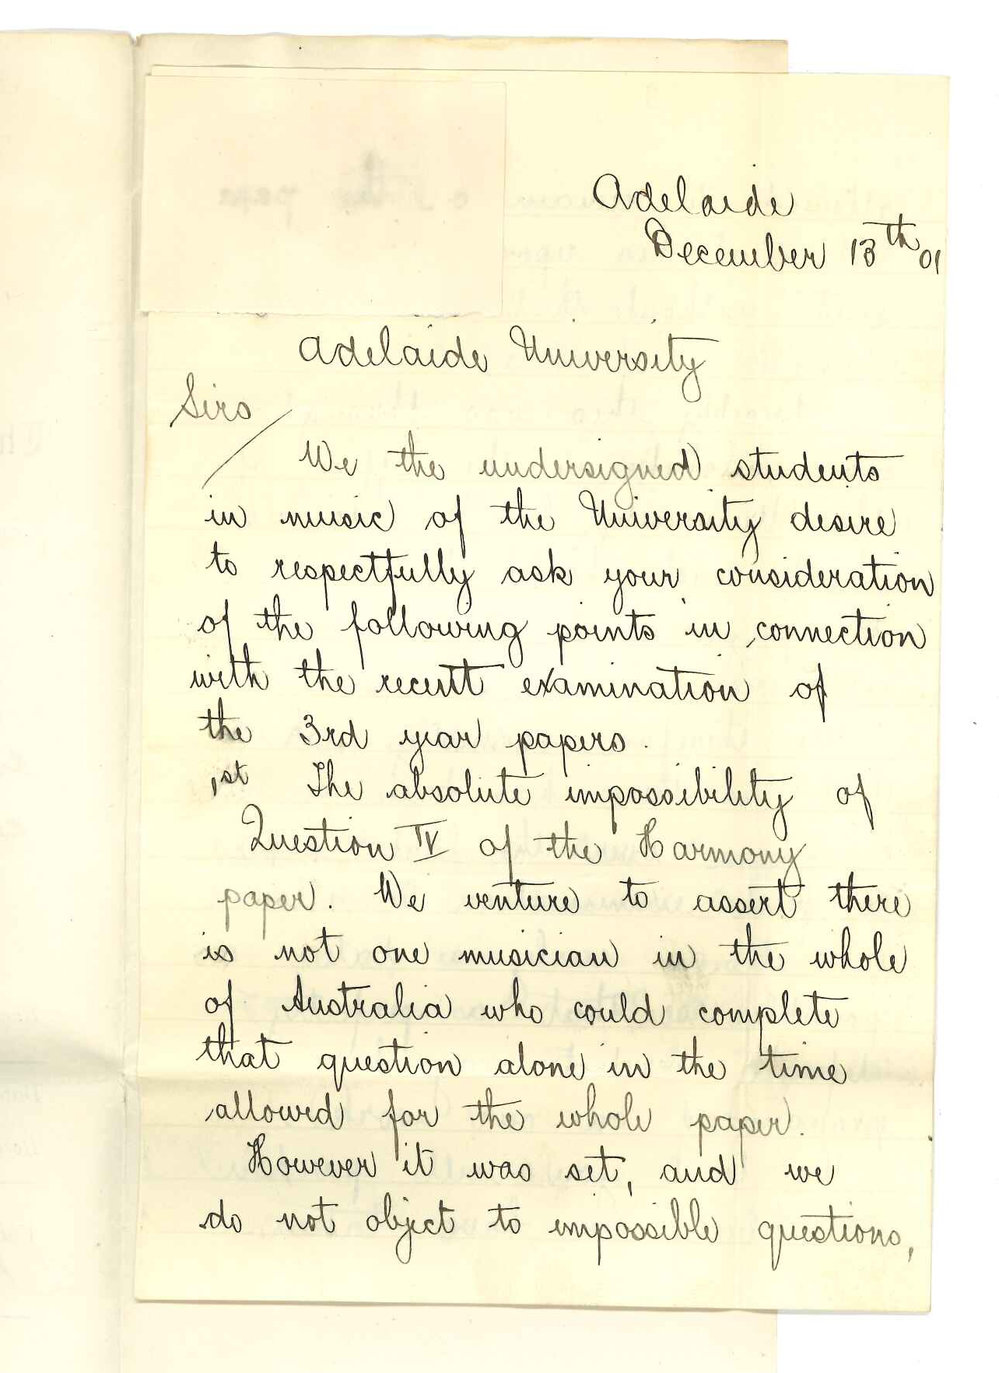 Adelaide
December 13th 01
Adelaide University
Sirs/
We the undersigned students
in music of the University desire
to respectfully ask your consideration
of the following points in connection
with the recent examination of
the 3rd year papers.
1st The absolute impossibility of
Question IV of the Harmony
paper. We venture to assert there
is not one musician in the whole
of Australia who could complete
that question alone in the time
allowed for the whole paper.
However it was set, and we
do not object to impossible questions,